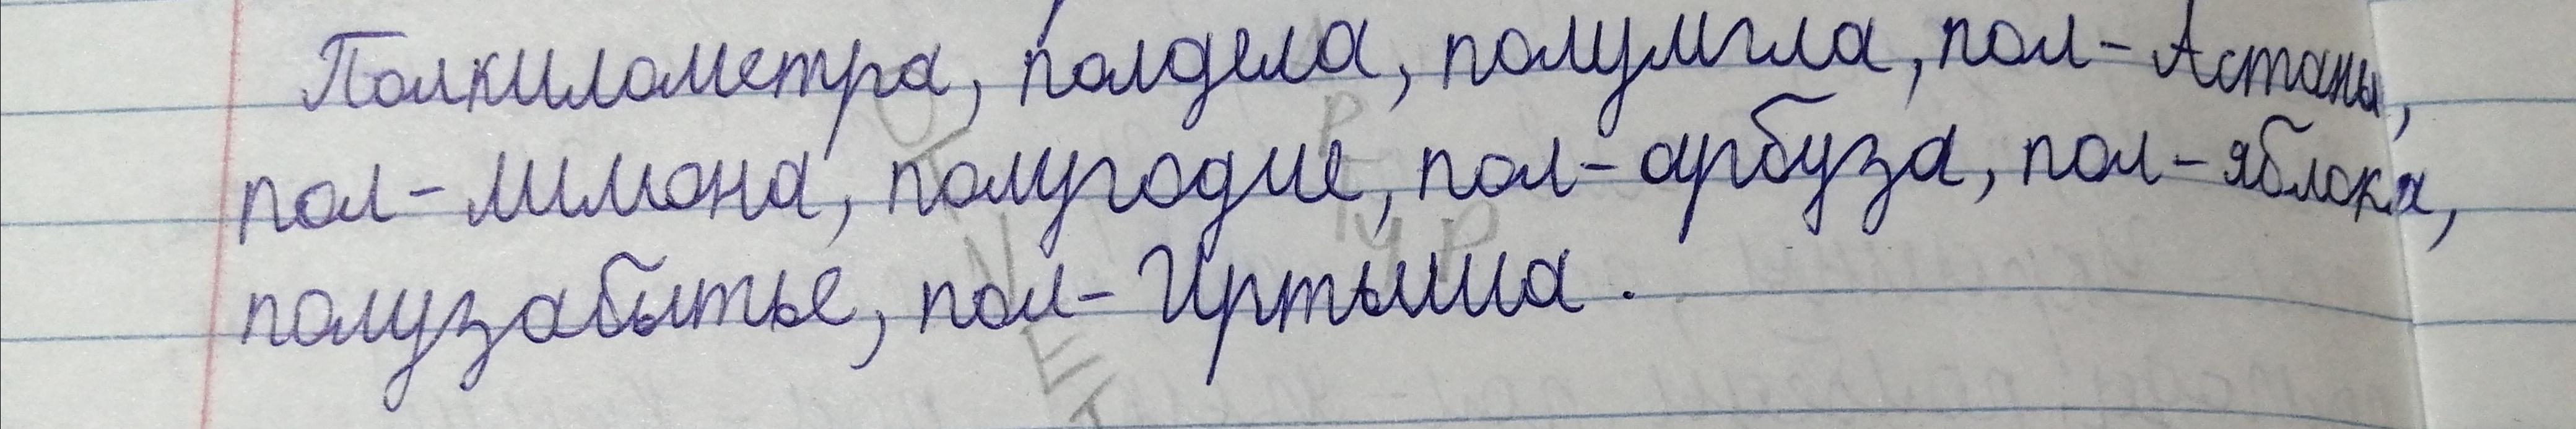 Полкилометра, полдела, полумгла, пол-Астаны,
пол-лимона, полугодие, пол-арбуза, пол-яблока,
полузабытье, пол-Иртыша.